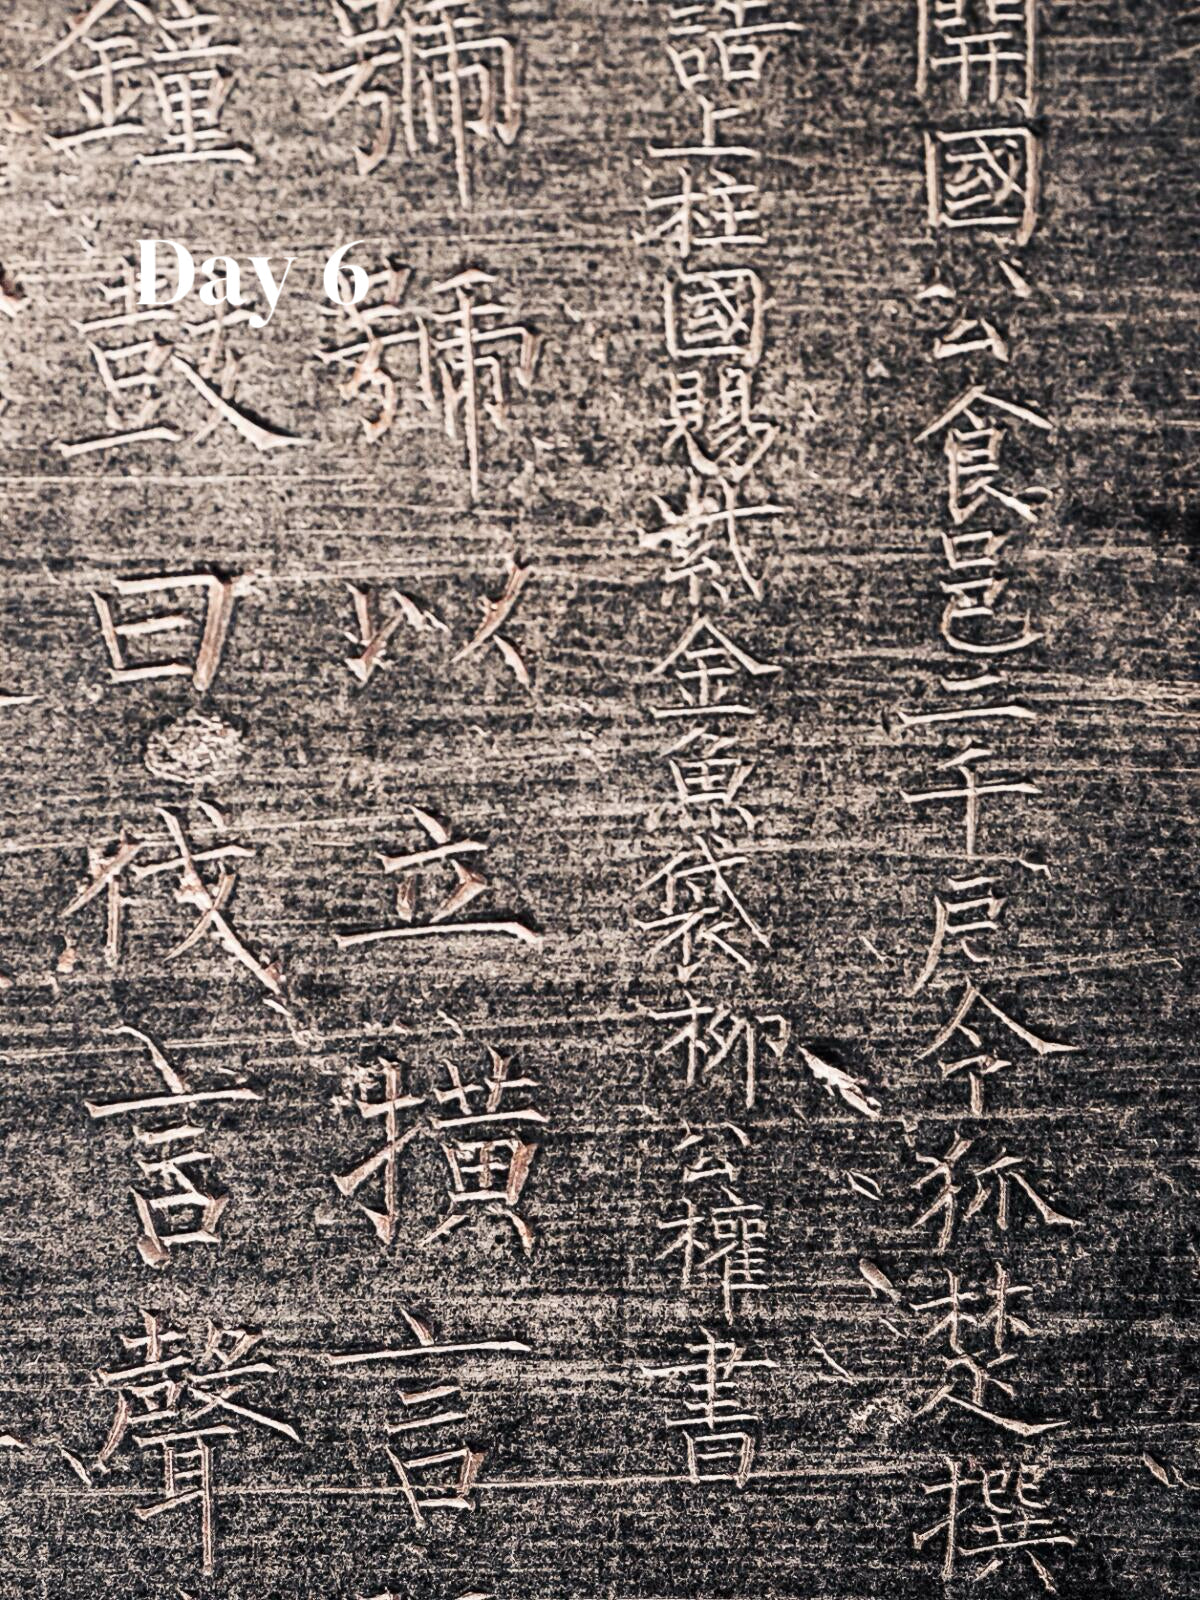 開國公食邑二千戶令狐楚撰
誥上柱國賜紫金魚袋柳公權書
號號以立橫言
鐘鼓曰伐言聲
Day 6